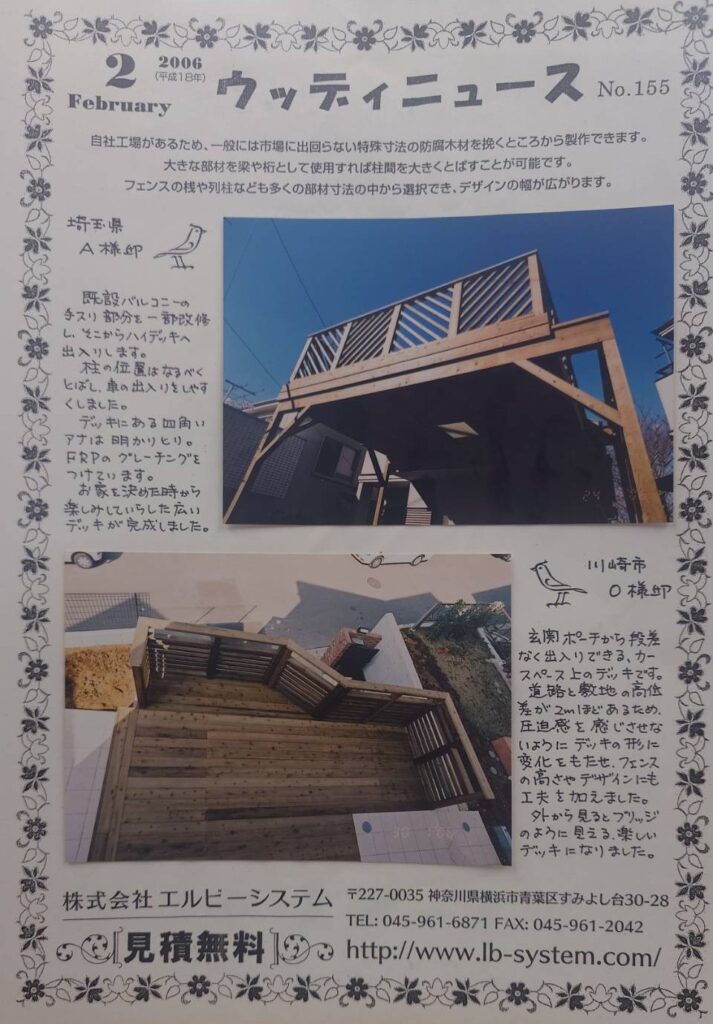 2
2006
(平成18年)
February
ウッディニュース No.155
自社工場があるため、一般には市場に出回らない特殊寸法の防腐木材を挽くところから製作できます。
大きな部材を梁や桁として使用すれば柱間を大きくとばすことが可能です。
フェンスの桟や列柱なども多くの部材寸法の中から選択でき、デザインの幅が広がります。
埼玉県
A様邸
既設バルコニーの
手スリ部分を一部改修
し、そこからハイデッキへ
出入りします。
柱の位置はなるべく
とばし、車の出入りをしやす
くしました。
デッキにある四角い
アナは明かりとり。
FRPのグレーチングを
つけています。
お家を決めた時から
楽しみしていらした広い
デッキが完成しました。
24
川崎市
O様邸
玄関ポーチから段差
なく出入りできる、カー
スペース上のデッキです。
道路と敷地の高低
差が2mほどあるため、
圧迫感を感じさせな
いようにデッキの形に
変化をもたせ、フェンス
の高さやデザインにも
工夫を加えました。
外から見るとブリッジ
のように見える、楽しい
デッキになりました。
株式会社 エルビーシステム
〒227-0035 神奈川県横浜市青葉区すみよし台30-28
TEL: 045-961-6871 FAX: 045-961-2042
見積無料
http://www.lb-system.com/